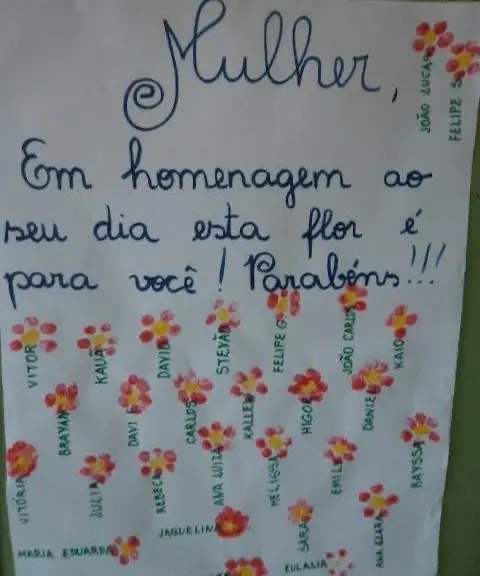 Mulher,
JOÃO LUCAS
FELIPE S.
Em homenagem ao
seu dia esta flor é
para você! Parabéns!!!
VITOR
KAUÃ
DAVID
STEVÃO
FELIPE G.
JOÃO CARLOS
KAIO
BRAYAN
DAVI
CARLOS
KALLEB
HIGOR
DANIEL
RAYSSA
VITÓRIA
JULIA
REBECA
ANA LUIZA
MELISSA
EMILY
MARIA EDUARDA
JAQUELINE
SARA
ANA CLARA
EULALIA